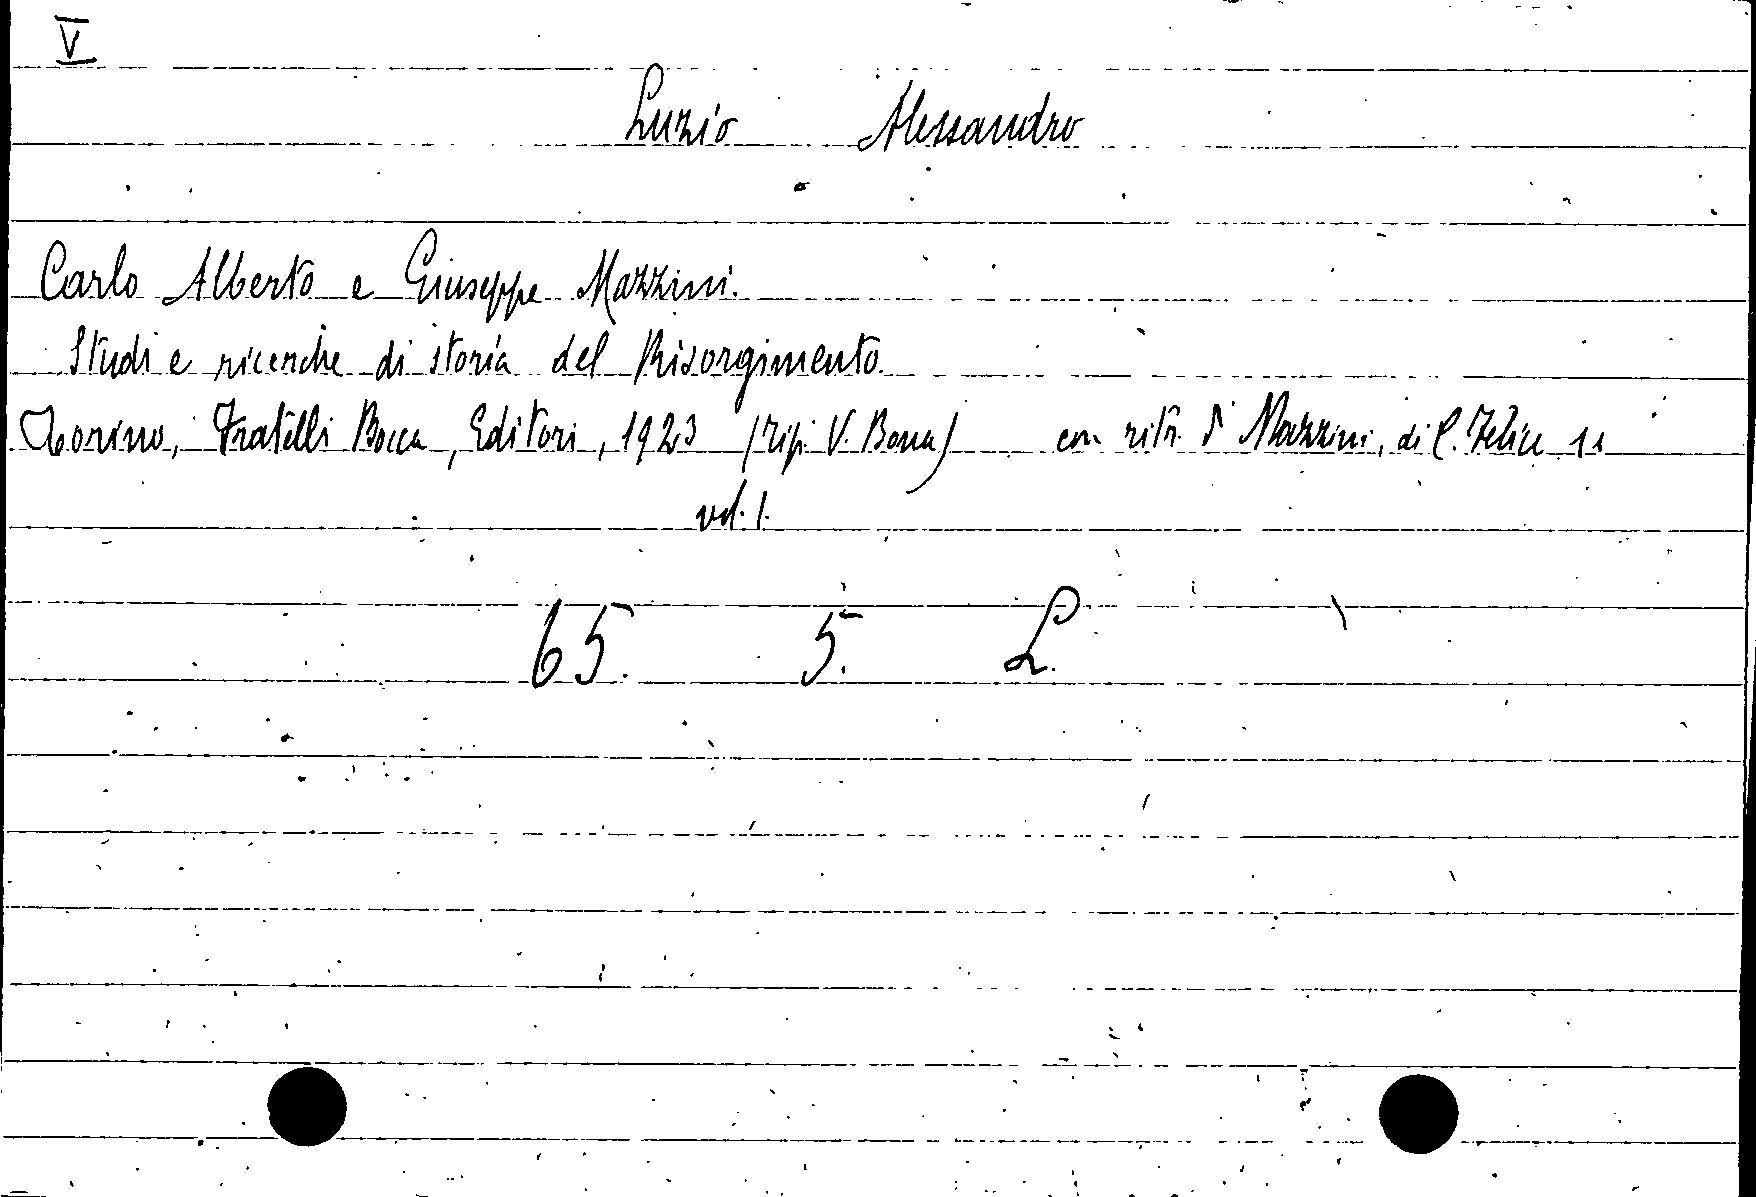 V
Luzio Alessandro
Carlo Alberto e Giuseppe Mazzini.
Studi e ricerche di storia del Risorgimento.
Torino, Fratelli Bocca, Editori, 1923 (tip. V. Bona) con ritr. di Mazzini, di C. Felice
vol. 1.
65. 5. L.